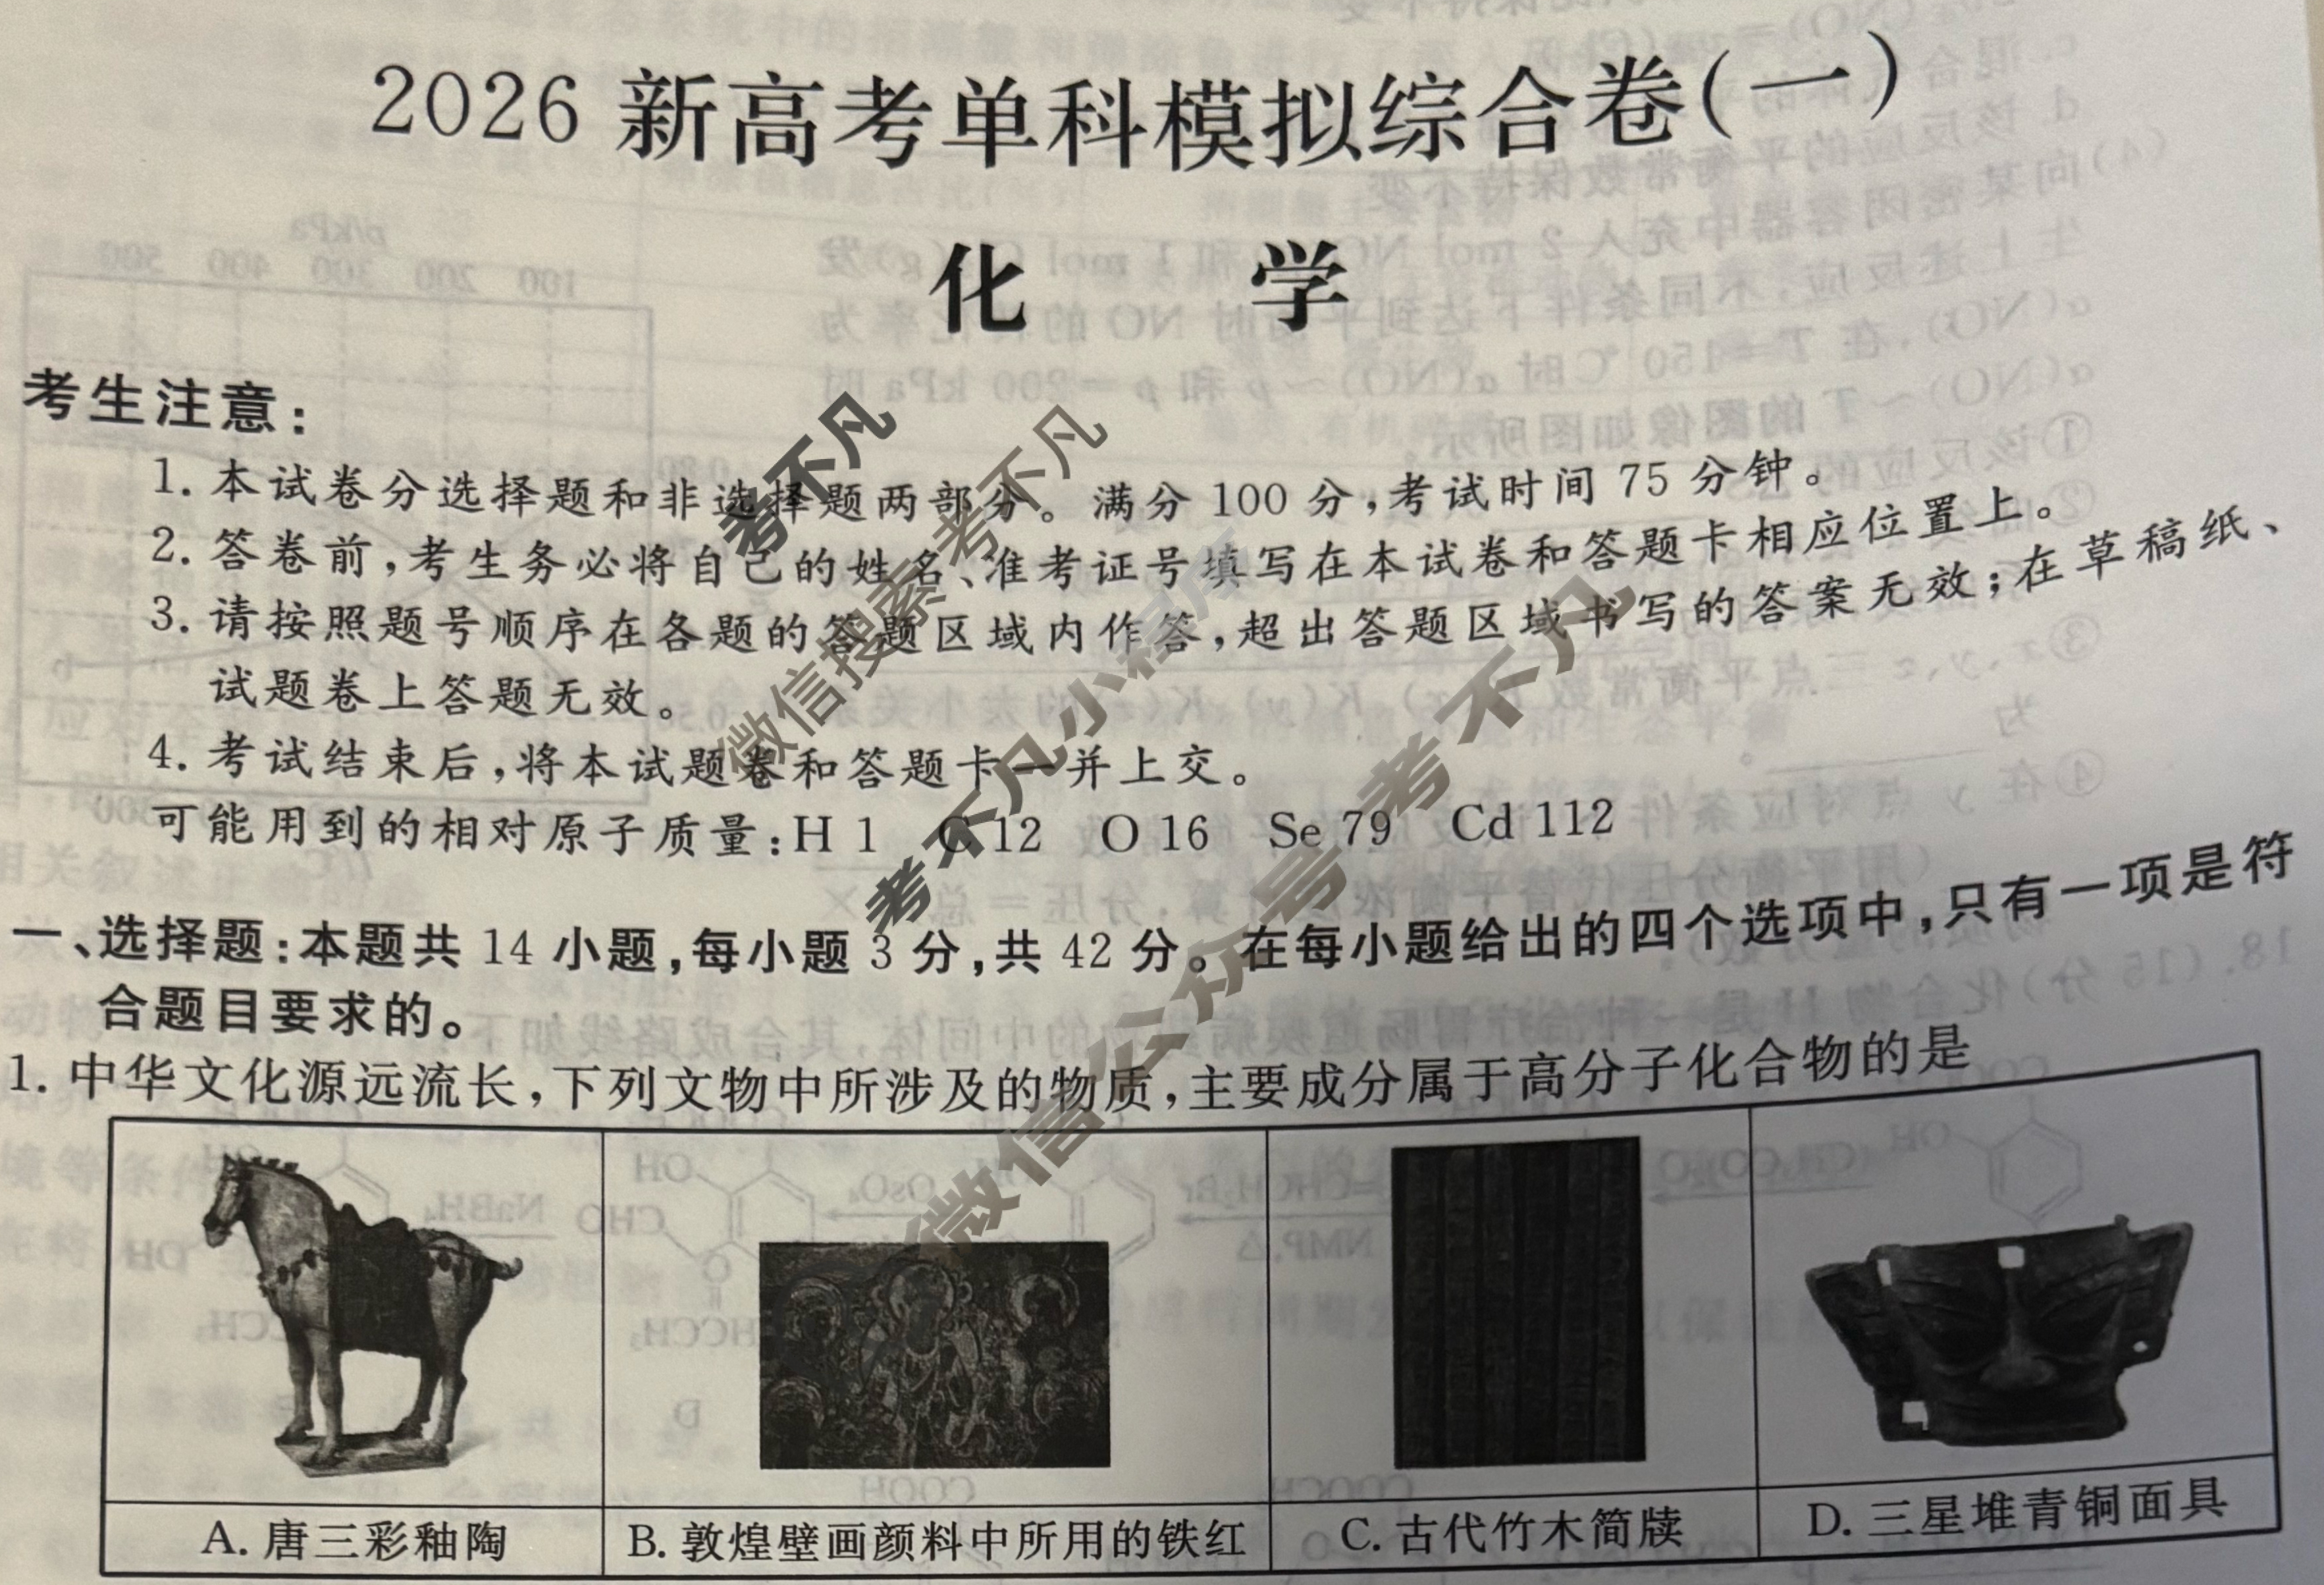 2026 新高考单科模拟综合卷(一)
化 学
考生注意:
1. 本试卷分选择题和非选择题两部分。满分 100 分,考试时间 75 分钟。
2. 答卷前,考生务必将自己的姓名、准考证号填写在本试卷和答题卡相应位置上。
3. 请按照题号顺序在各题的答题区域内作答,超出答题区域书写的答案无效;在草稿纸、
试题卷上答题无效。
4. 考试结束后,将本试题卷和答题卡一并上交。
可能用到的相对原子质量:H 1 C 12 O 16 Se 79 Cd 112
一、选择题:本题共 14 小题,每小题 3 分,共 42 分。在每小题给出的四个选项中,只有一项是符
合题目要求的。
1. 中华文化源远流长,下列文物中所涉及的物质,主要成分属于高分子化合物的是
A. 唐三彩釉陶
B. 敦煌壁画颜料中所用的铁红
C. 古代竹木简牍
D. 三星堆青铜面具
考不凡
微信搜索考不凡
考不凡小程序
微信公众号考不凡